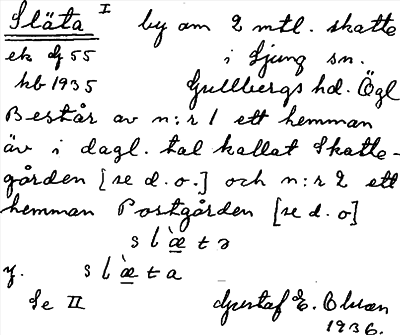 Släta I by om 2 mtl. skatte
ek bf 55 i Ljung sn.
hb 1935 Gullbergs hd. Ögl
Består av n:r 1 ett hemman
äv i dagl. tal kallat Skatte-
gården [se d.o.] och n:r 2 ett
hemman Postgården [se d.o]
s l æ̀ t ə
y. s l æ̀ t a
Se II Gustaf E. Olsson
1936.